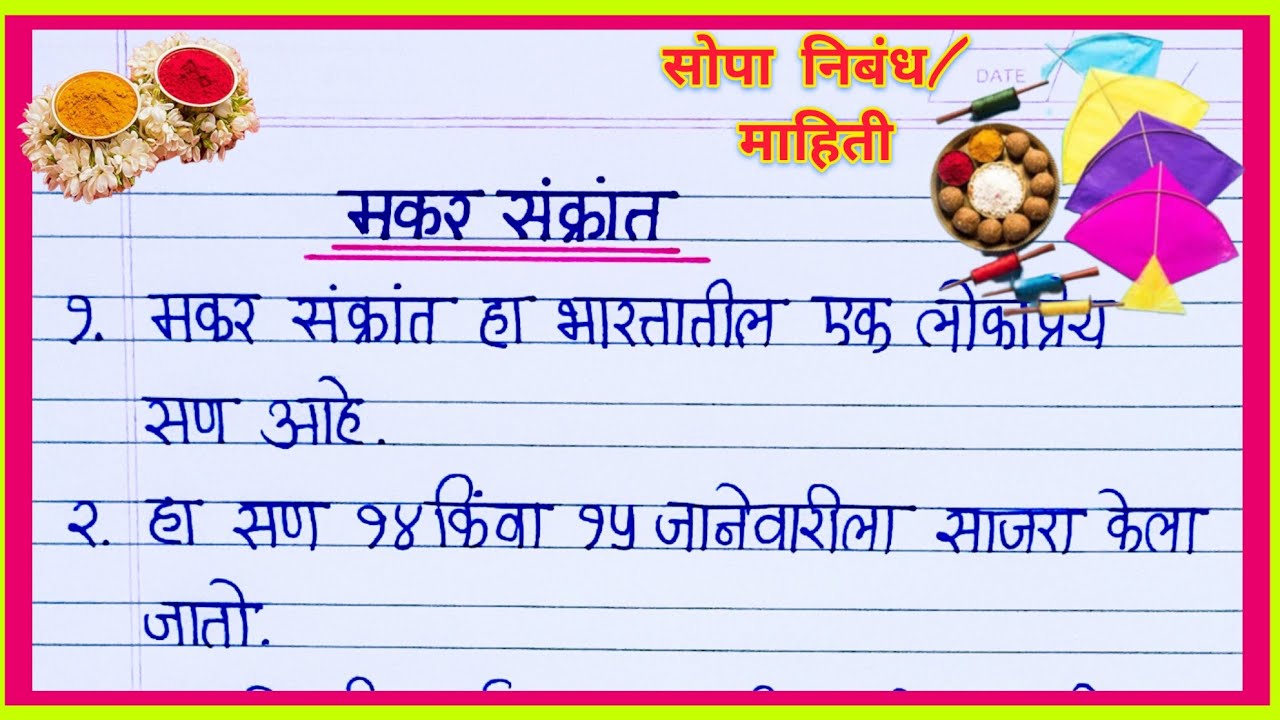 सोपा निबंध/
माहिती
DATE
मकर संक्रांत
१. मकर संक्रांत हा भारतातील एक लोकप्रिय
सण आहे.
२. हा सण १४ किंवा १५ जानेवारीला साजरा केला
जातो.